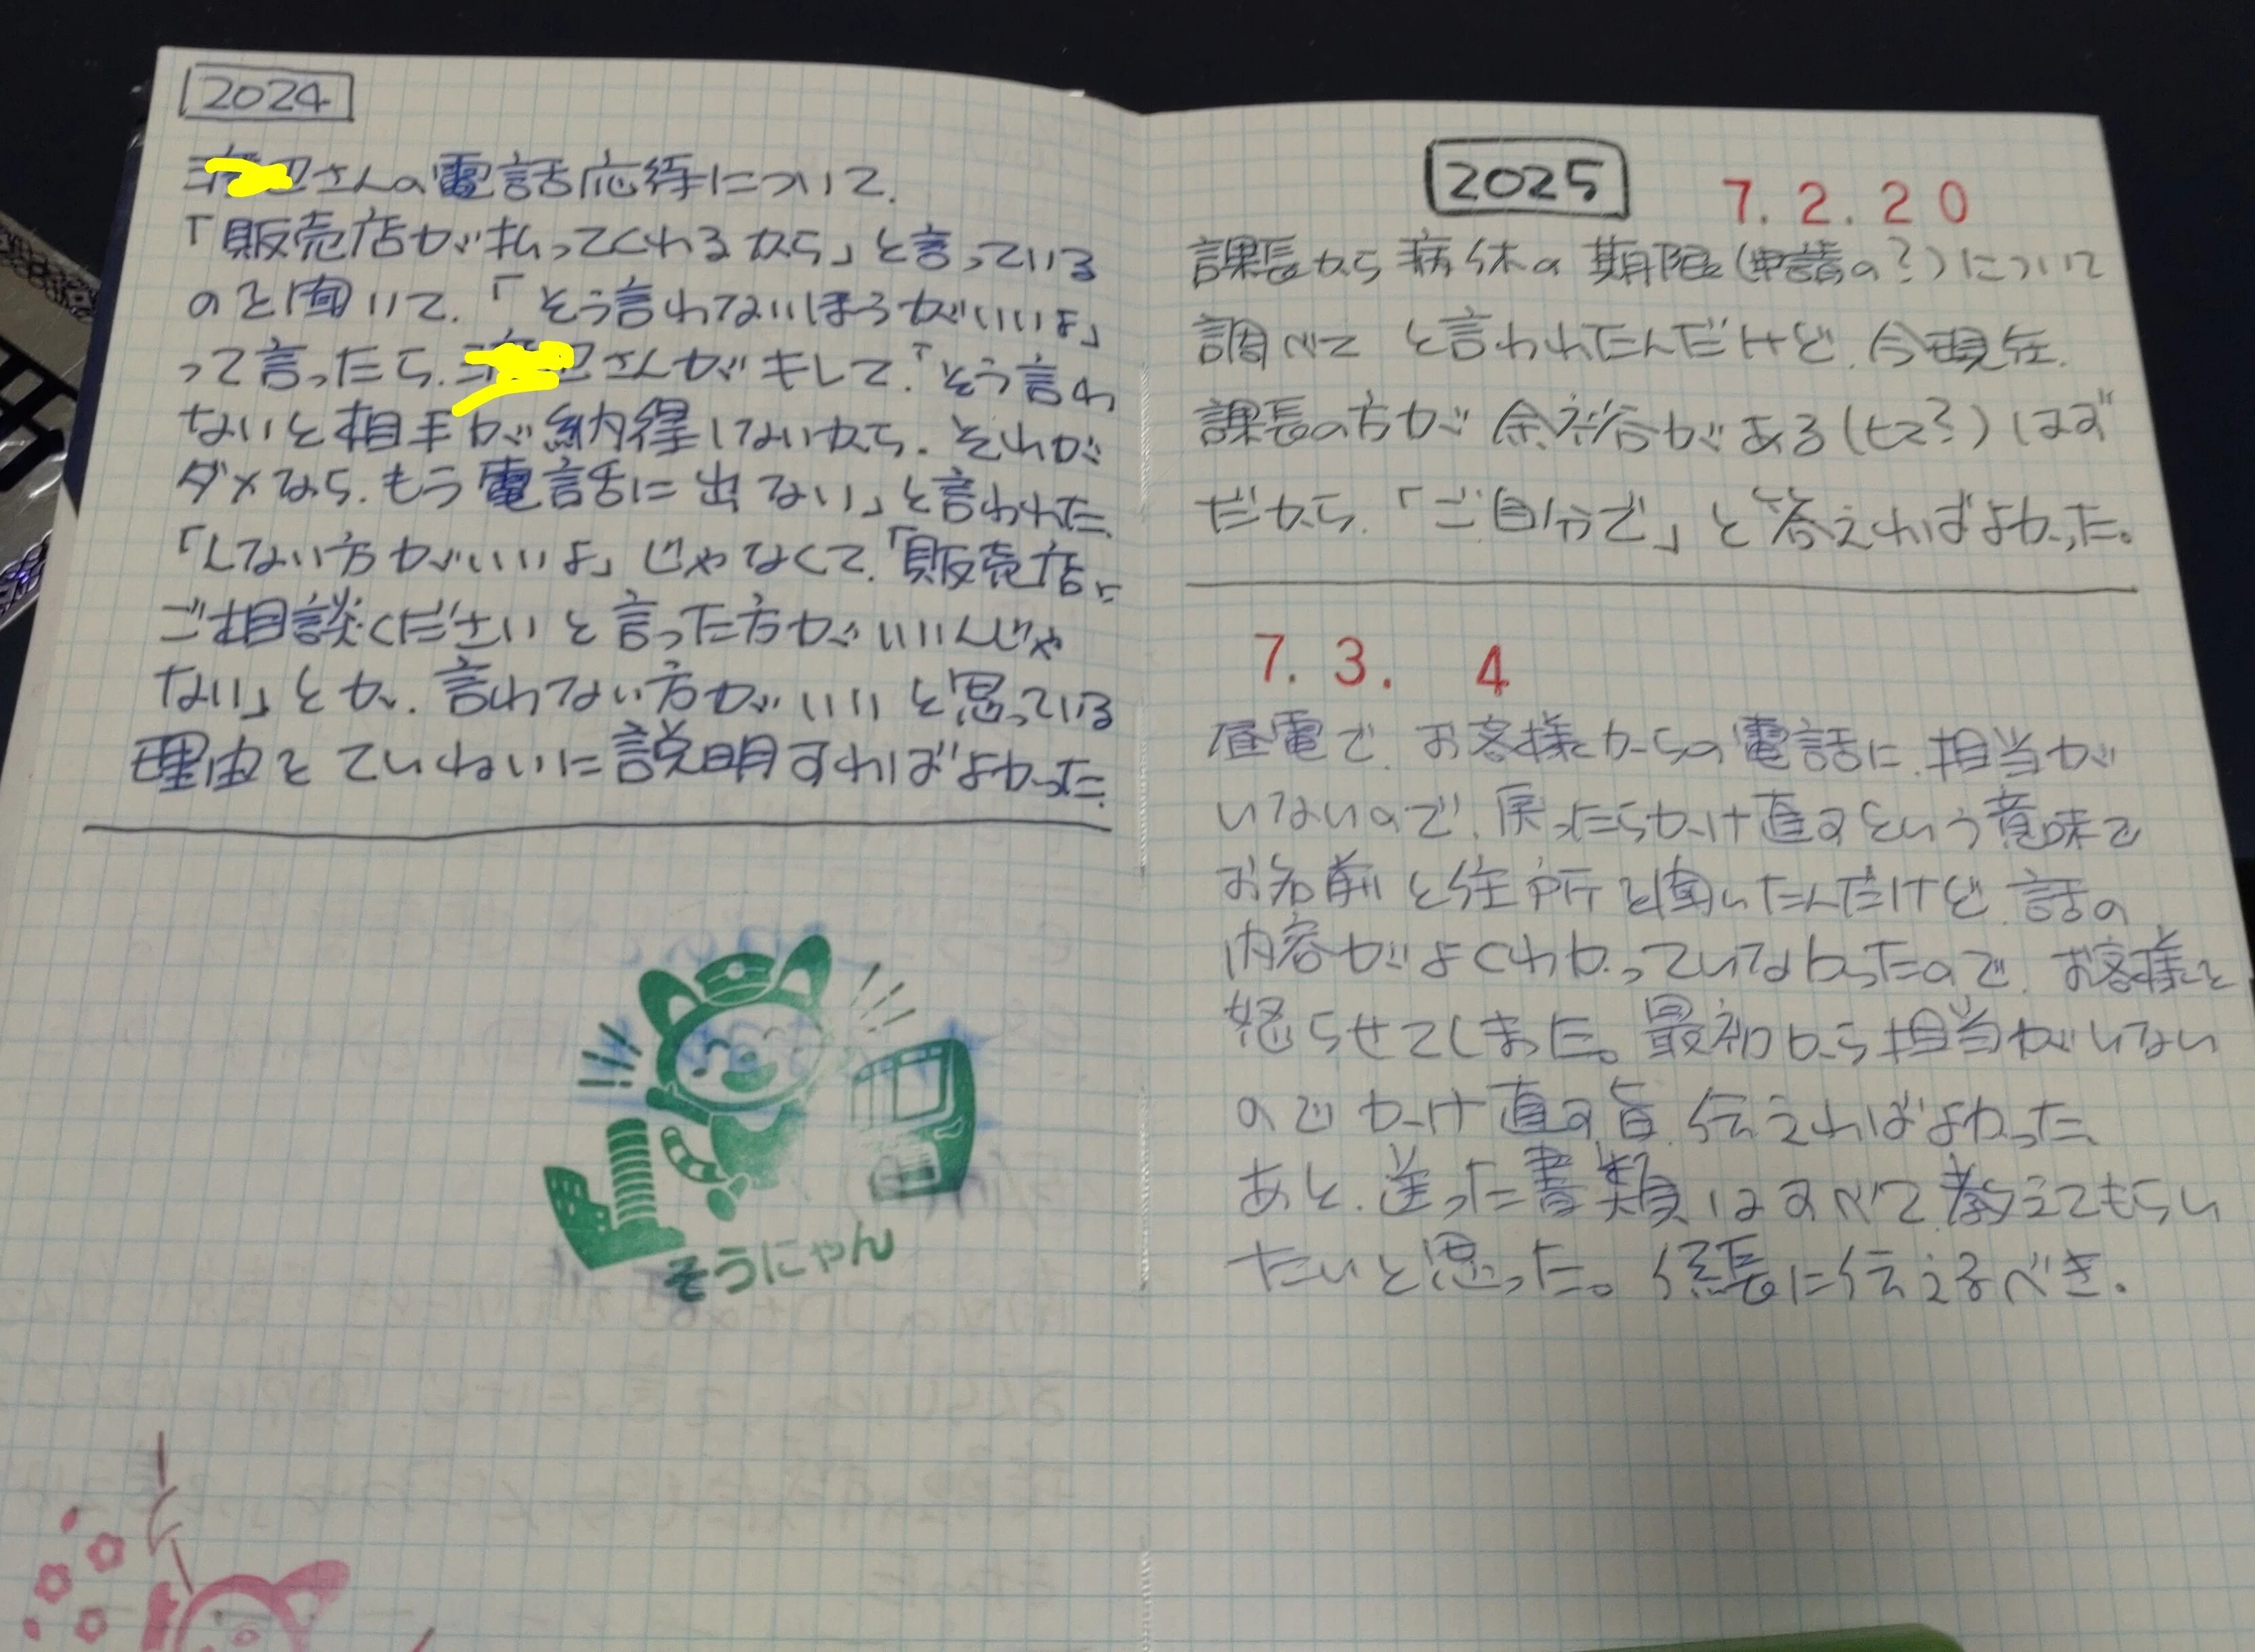 2024
さんの電話応待について.
「販売店が払ってくれるから」と言っている
のを聞いて.「そう言わないほうがいいよ」
って言ったら.さんがキレて.「そう言わ
ないと相手が納得しないから.それが
ダメなら.もう電話に出ない」と言われた.
「しない方がいいよ」じゃなくて.「販売店に
ご相談くださいと言った方がいいんじゃ
ない」とか.言わない方がいいと思っている
理由をていねいに説明すればよかった.
そうにゃん
2025 7.2.20
課長から病休の期限(申請の?)について
調べてと言われたんだけど.今現在.
課長の方が余裕がある(ヒマ?)はず
だから.「ご自分で」と答えればよかった。
7.3. 4
昼電で.お客様からの電話に.担当が
いないので.戻ったらかけ直すという意味で
お名前と住所を聞いたんだけど.話の
内容がよくわかっていなかったので.お客様を
怒らせてしまった。最初から担当がいない
のでかけ直す旨.伝えればよかった.
あと.送った書類はすべて教えてもらい
たいと思った。係長に伝えるべき.